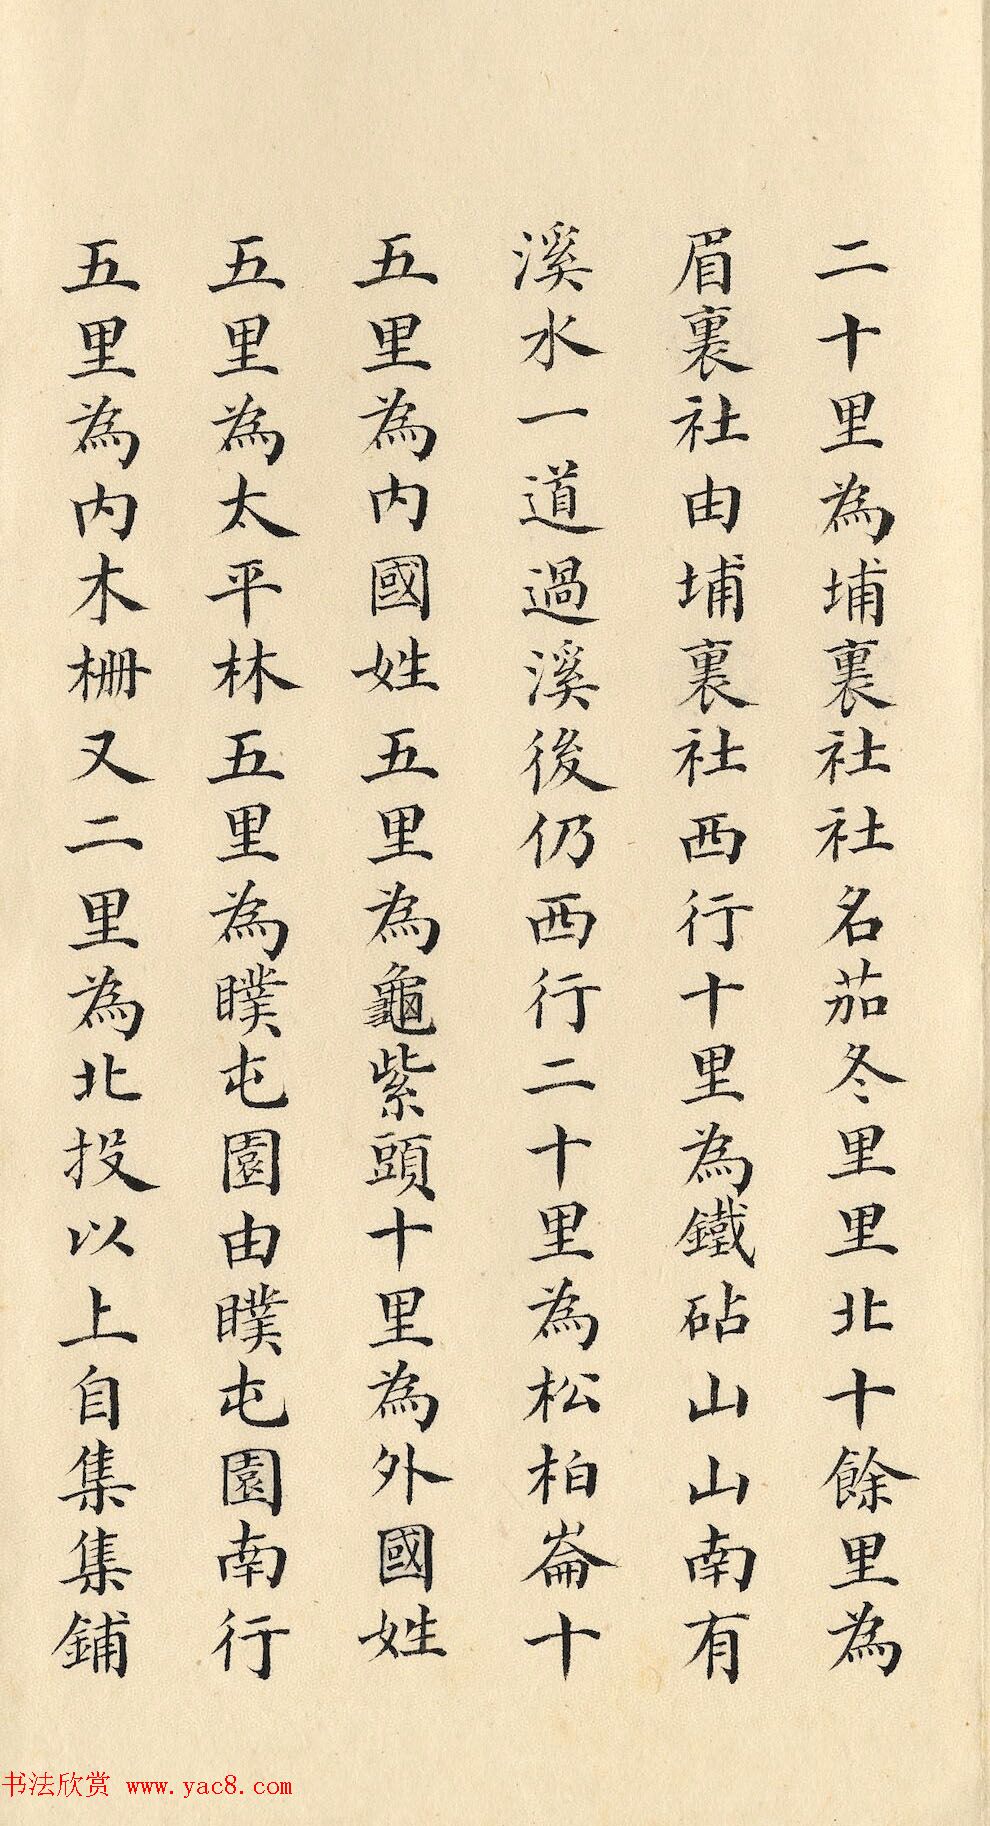 二十里為埔裏社社名茄冬里里北十餘里為
眉裏社由埔裏社西行十里為鐵砧山山南有
溪水一道過溪後仍西行二十里為松柏崙十
五里為內國姓五里為龜紫頭十里為外國姓
五里為太平林五里為瞨屯園由瞨屯園南行
五里為內木柵又二里為北投以上自集集鋪
书法欣赏 www.yac8.com